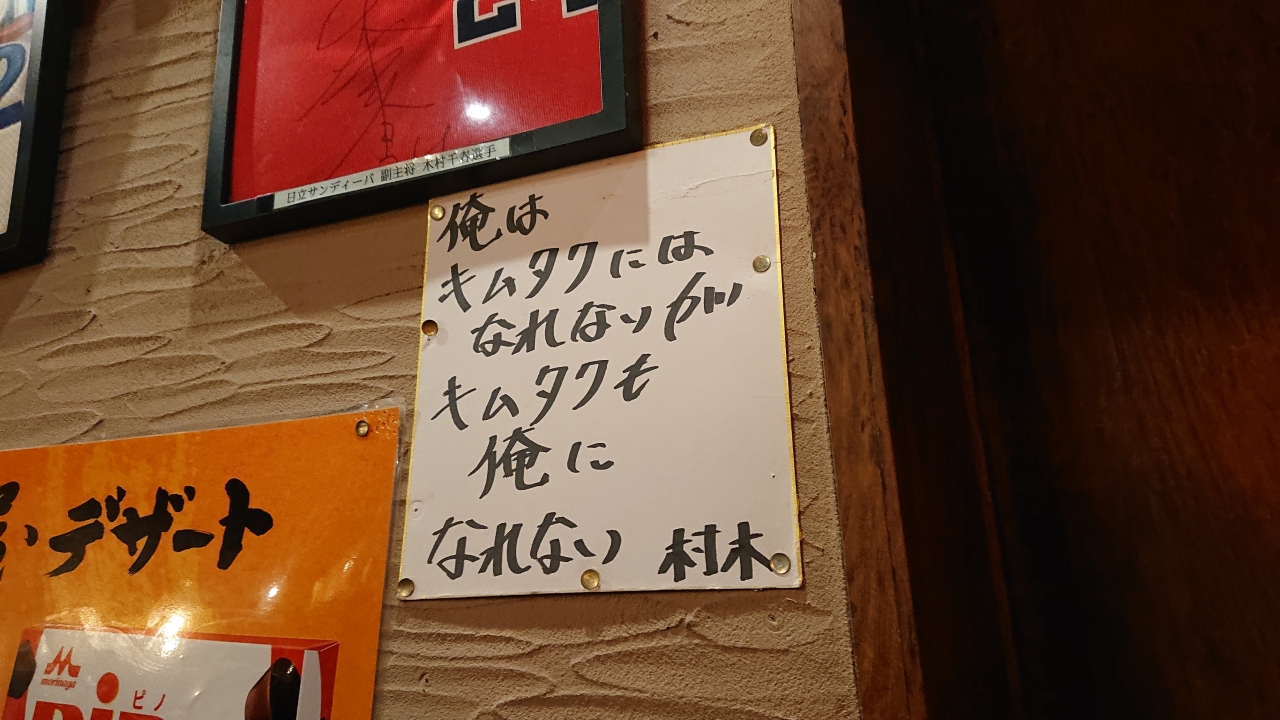 日立サンディーバ 副主将 木村千春選手
俺は
キムタクには
なれないが
キムタクも
俺に
なれない 村木
デザート
morinaga
ピノ